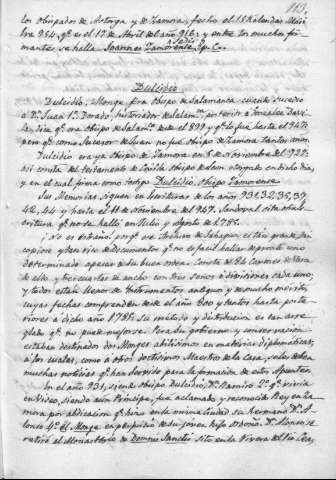 113.
los obispados de Astorga y de Zamora, fecho el 15 Kalendas
954, qe. es el 17 de Abril de año 916: y entre los mucho fir-
mantes se halla Joannes Zamorense Sedis Ep. Co.
Dulcidio
Dulcidio, Monge era Obispo de Salamanca cuando sucedio
a Dn. Juan 1º. Dorado, historiador de Salama. posterior a Gonzalez Davi-
la, dice qe. era Obispo de Salama. desde el 899 y qe. lo fué hasta el 947:
pero qe. como Sucesor de Juan no fué Obispo de Zamora tanto
Dulcidio era ya Obispo de Zamora en 8 de Noviembre del 927:
asi consta del testamento de Obispo de Leon otorgado en dicho dia,
y en el cual firma como testigo Dulcidio, Obispo Zamorense
Sus Memorias siguen en Escrituras de los años 931, 32, 35, 39,
42, 44 y hasta el 11 de Noviembre del 947. Sandoval cita otra es-
critura qe. no se halla en Julio y Agosto de 1785.
No es estraño porqe. el tesoro de Sahagun es tan grande, tan
copioso y tan rico de documentos qe. no es facil hallar de pronto uno
determinado apesar de su buen orden. Consta de 24 Cajones de Vara
de alto, y tres cuartas de ancho con tres senos o divisiones cada uno,
y todos estan llenos de Instrumentos antiguos y de mucho merito,
cuyas fechas comprenden desde el año 800 y tantos hasta poste-
riores a dicho año 1785. Su metodo y distribucion es tan arre-
glada qe. no puede mejorarse. Para su gobierno y conservacion
estaban destinados dos Monges abilisimos en materias diplomaticas,
a los cuales, como a otros doctisimos Maestros de la casa, se les deben
muchas noticias qe. han servido para la formacion de estos Apuntes
En el año 931, siendo Obispo Dulcidio, Dn. Ramiro 2º. qe. vivia
en Viseo, siendo aun Principe, fué aclamado y reconocido Rey en Za-
mora por abdicacion qe. hizo en la misma Ciudad su hermano Dn. A-
lonso 4º. el Monge en perjuicio de su joven hijo Ordoño. Dn. Alonso se
retiró al Monasterio de Domnis Sanctis sito en la Rivera del Rio Cea,